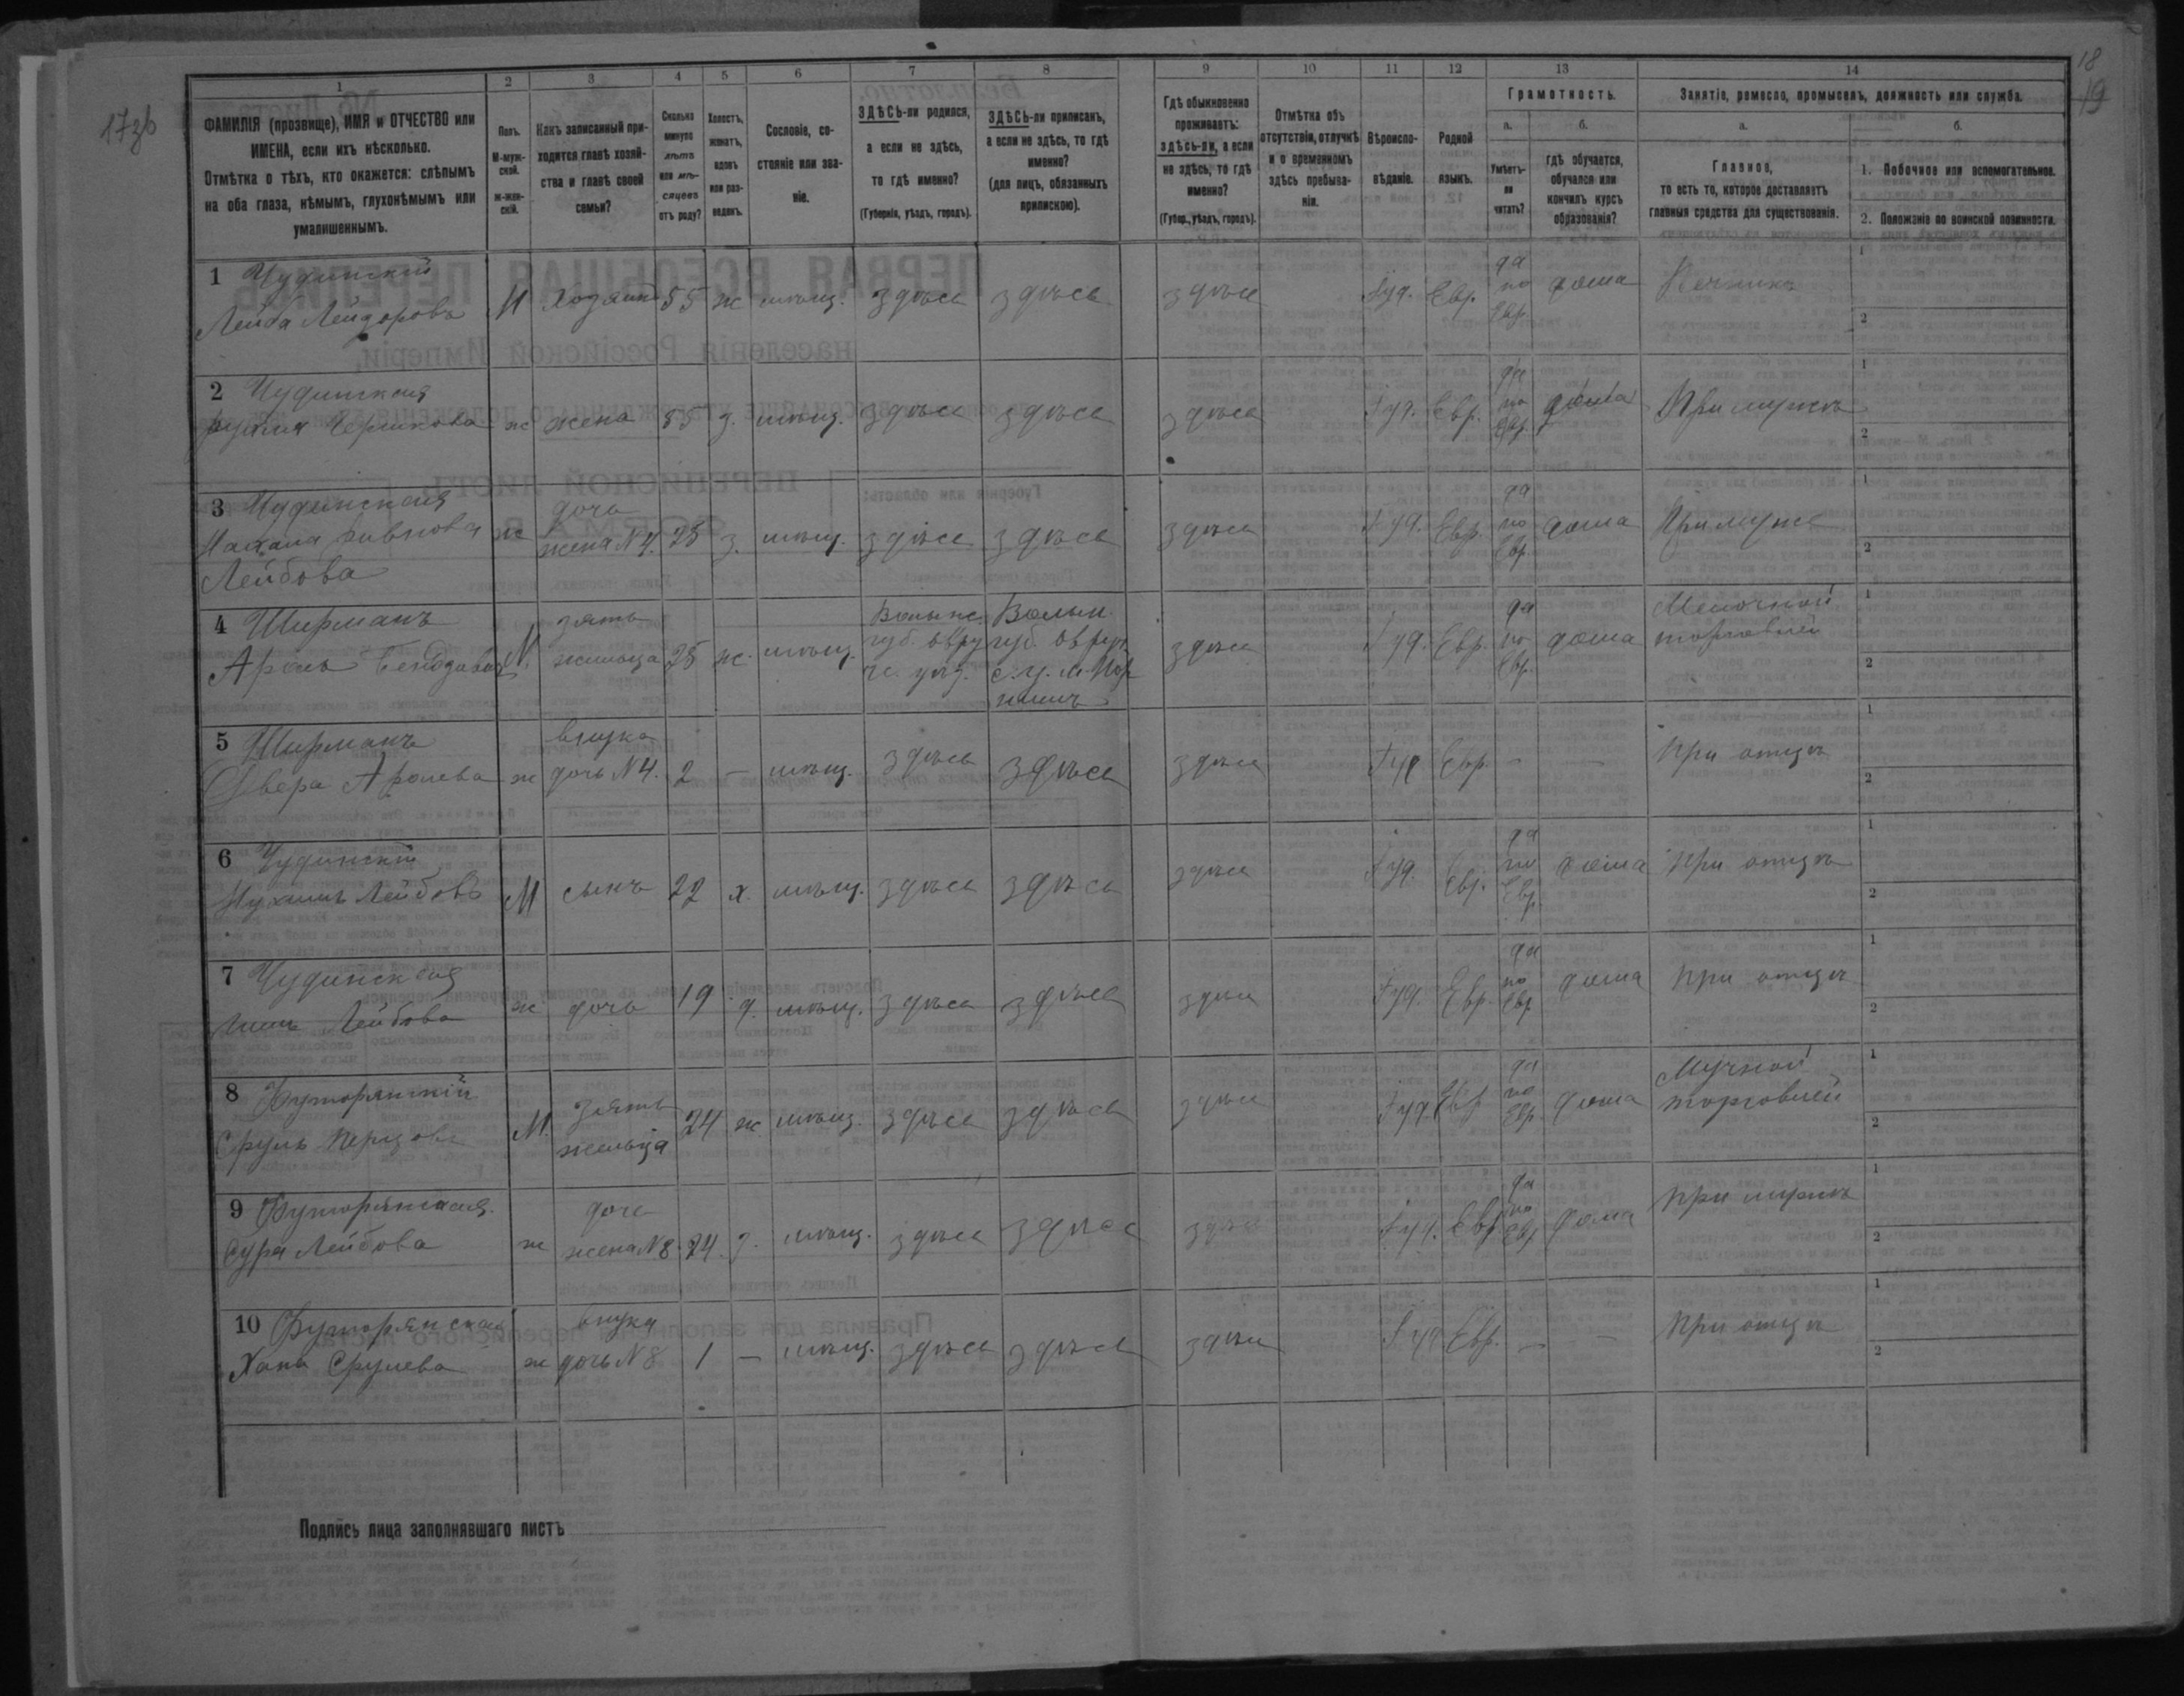 18
19
17об
1
2
3
4
5
6
7
8
9
10
11
12
13
14
ФАМИЛІЯ (прозвище), ИМЯ и ОТЧЕСТВО или
ИМЕНА, если ихъ нѣсколько.
Отмѣтка о тѣхъ, кто окажется: слѣпымъ
на оба глаза, нѣмымъ, глухонѣмымъ или
умалишеннымъ.
Полъ.
М-муж-
ской.
ж-жен-
скій.
Какъ записанный при-
ходится главѣ хозяй-
ства и главѣ своей
семьи?
Сколько
минуло
лѣтъ
или мѣ-
сяцевъ
отъ роду?
Холостъ,
женатъ,
вдовъ
или раз-
веденъ.
Сословіе, со-
стояніе или зва-
ніе.
ЗДѢСЬ-ли родился,
а если не здѣсь,
то гдѣ именно?
(Губернія, уѣздъ, городъ).
ЗДѢСЬ-ли приписанъ,
а если не здѣсь, то гдѣ
именно?
(для лицъ, обязанныхъ
припискою).
Гдѣ обыкновенно
проживаетъ:
здѣсь-ли, а если
не здѣсь, то гдѣ
именно?
(Губер., уѣздъ, городъ).
Отмѣтка объ
отсутствіи, отлучкѣ
и о временномъ
здѣсь пребыва-
ніи.
Вѣроиспо-
вѣданіе.
Родной
языкъ.
Грамотность.
а.
Умѣетъ-
ли
читать?
б.
гдѣ обучается,
обучался или
кончилъ курсъ
образованія?
Занятіе, ремесло, промыселъ, должность или служба.
а.
Главное,
то есть то, которое доставляетъ
главныя средства для существованія.
б.
1. Побочное или вспомогательное.
2. Положеніе по воинской повинности.
1 Чудинскій
Лейба Лейзоровъ М хозяинъ 55 ж мѣщ. здѣсь здѣсь здѣсь Іуд. Евр. да по Евр. дома Печникъ
1
2
2 Чудинская
ж жена 55 з. мѣщ. здѣсь здѣсь здѣсь Іуд. Евр. да по Евр. дома При мужѣ
1
2
3 Чудинская
Лейбова ж дочь жена N4. 25 з. мѣщ. здѣсь здѣсь здѣсь Іуд. Евр. да по Евр. дома При мужѣ
1
2
4 Ширманъ
Аронъ М. зять жильца 25 ж. мѣщ. Волынс. губ. Овру че. уѣз. Волын. губ. Овруч. здѣсь Іуд. Евр. да по Евр. дома Мелочной торговлей
1
2
5 Ширманъ
Двера Аронева ж внука дочь N4. 2 — мѣщ. здѣсь здѣсь здѣсь Іуд Евр. — — При отцѣ
1
2
6 Чудинскій
Нухимъ Лейбовъ М сынъ 22 х. мѣщ. здѣсь здѣсь здѣсь Іуд. Евр. да по Евр. дома При отцѣ
1
2
7 Чудинская
Лейбова ж дочь 19 д. мѣщ. здѣсь здѣсь здѣсь Іуд. Евр. да по Евр. дома При отцѣ
1
2
8 Хуторянскій
Сруль Перцовъ М. зять жильца 24 ж мѣщ. здѣсь здѣсь здѣсь Іуд. Евр. да по Евр. дома Мучной торговлей
1
2
9 Хуторянская
Сура Лейбова ж дочь жена N8. 24. з. мѣщ. здѣсь здѣсь здѣсь Іуд. Евр. да по Евр. дома При мужѣ
1
2
10 Хуторянская
Хана Срулева ж внука дочь N8 1 — мѣщ. здѣсь здѣсь здѣсь Іуд Евр. — — При отцѣ
1
2
Подпись лица заполнявшаго листъ